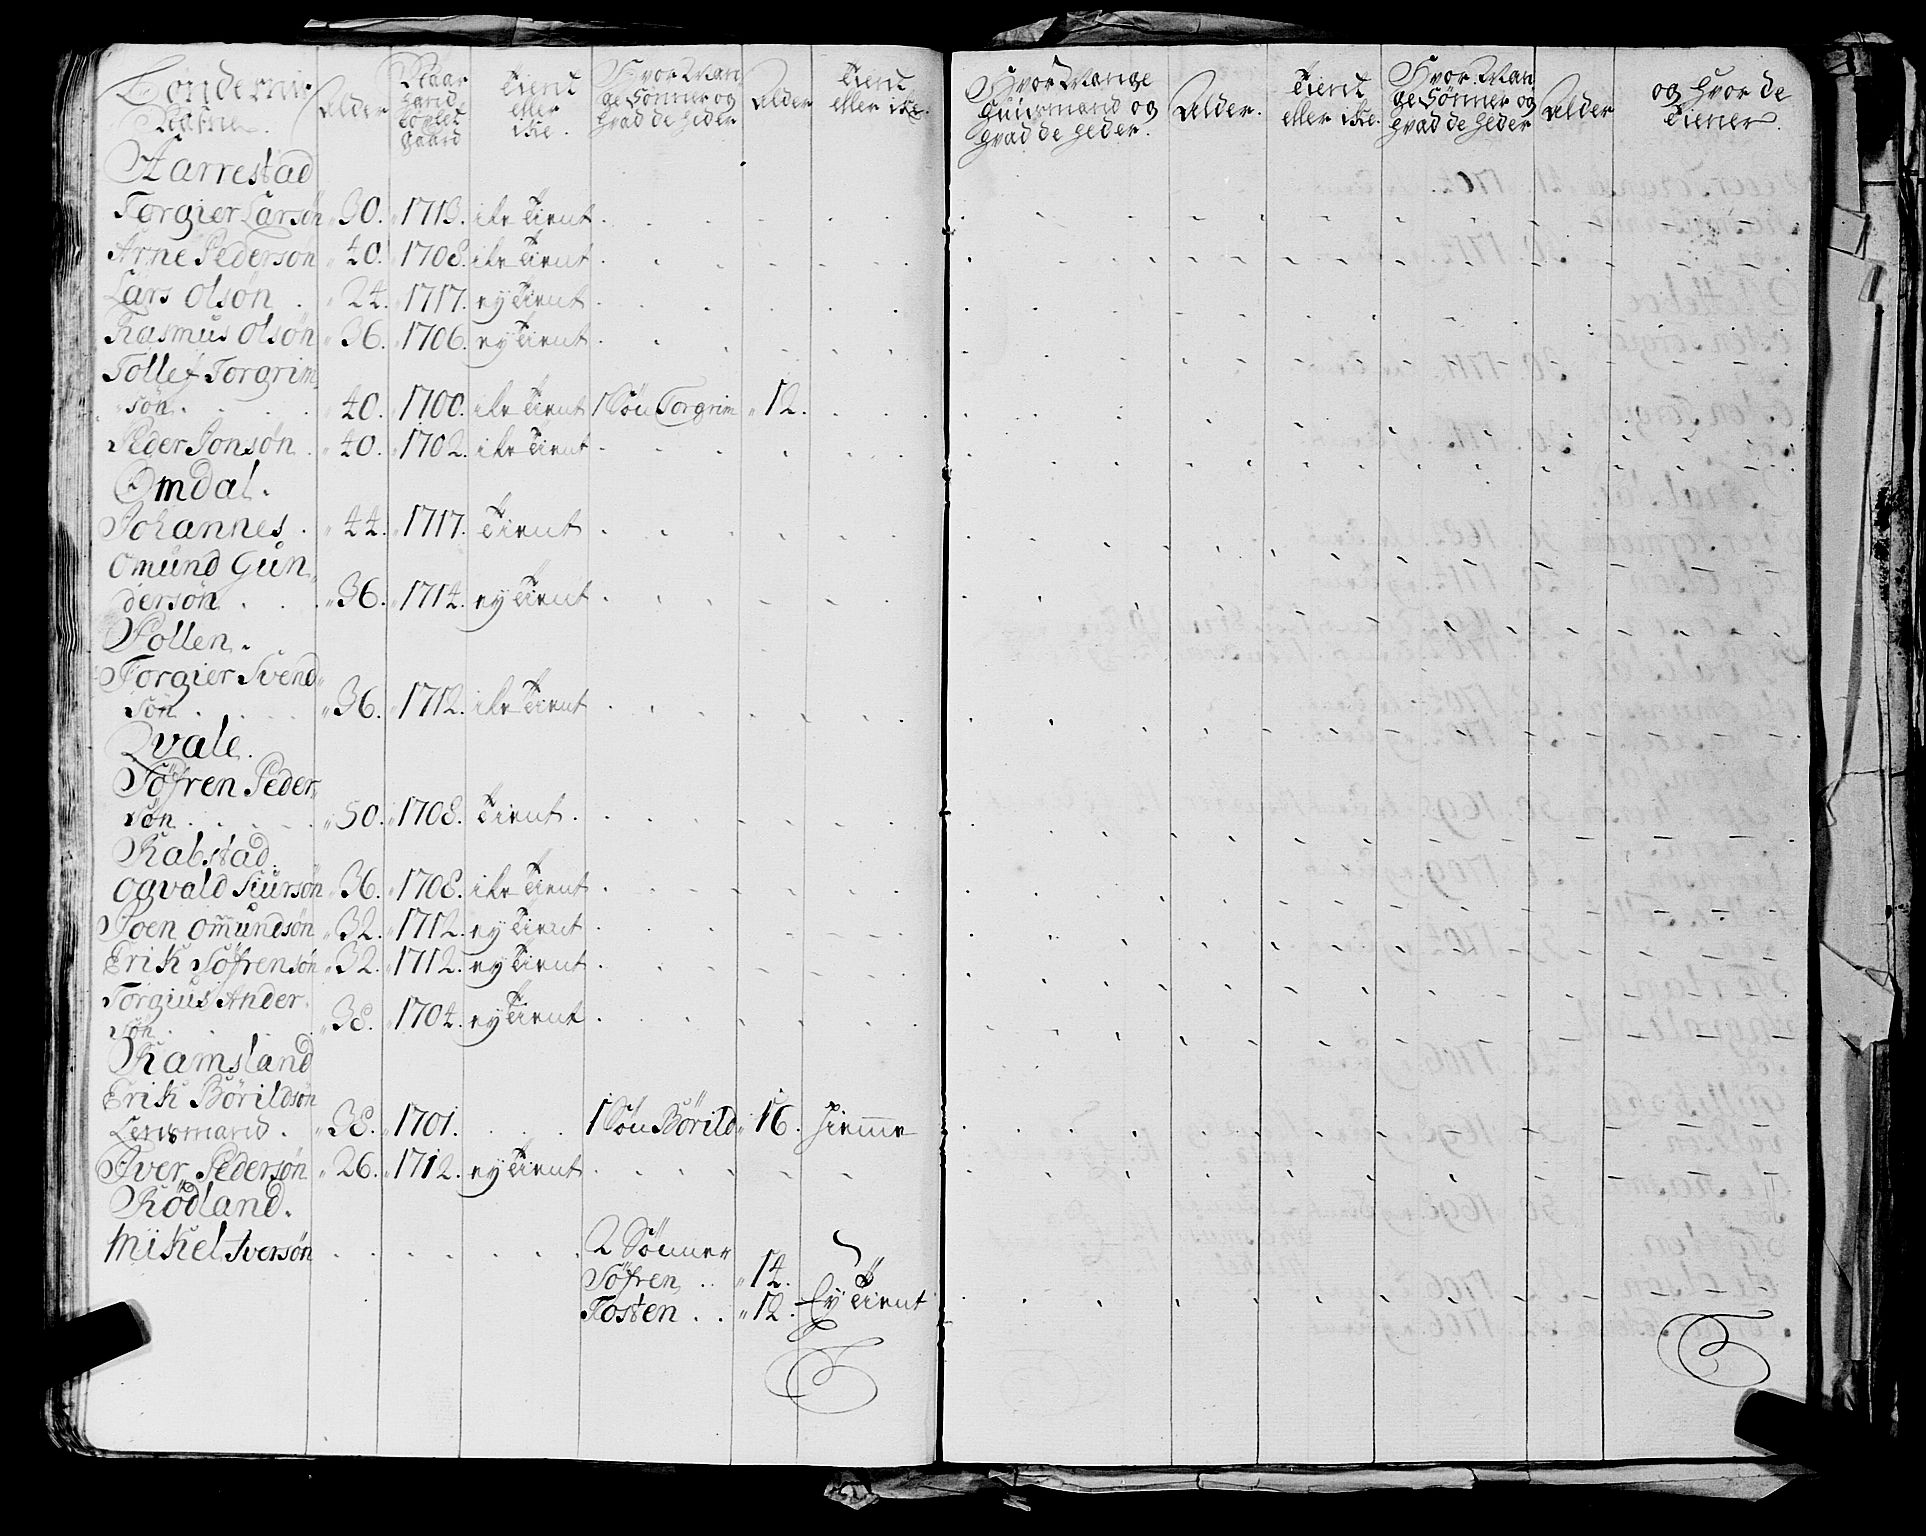 Bøndernis Nafne. Alder Aar hand bøxlet gaard Tient eller ike. Hvor Mange Sønner og hvad de heder Alder Tient eller ike. Hvor Mange Huusmænd og hvad de heder. Alder. Tient eller ike. Hvor Mange Sønner og hvad de heder Alder og hvor de Tiener.
Aarrestad
Torgier Larsøn 30. 1713. ike Tient
Arne Pedersøn 40. 1708. ike Tient
Lars Olsøn 24. 1717. ey Tient
Rasmus Olsøn 36. 1706. ey Tient
Tollef Torgrim
søn. 40. 1700. ike Tient 1 Søn Torgrim 12.
Peder Jonsøn 40. 1702. ike Tient
Omdal.
Johannes. 44. 1717. Tient
Omund Gun
dersøn 36. 1714. ey Tient
Pollen.
Torgier Svend
søn 36. 1712. ike Tient
Qvale.
Söfren Peder
søn 50. 1708. Tient.
Rabstad.
Ogvald Siursøn 36. 1708. ike Tient
Joen Omundsøn 32. 1712. ey Tient
Erik Söfrensøn 32. 1712. ey Tient
Torgius Ander
søn. 38. 1704. ey Tient
Ramsland
Erik Börildsøn
Lensmand. 38. 1701. 1 Søn Börild 16. hieme
Iver Pedersøn 26. 1712. ey Tient
Rödland.
Mikel Iversøn 2 Sønner
Söfren 14.
Tosten 12. Ey Tient